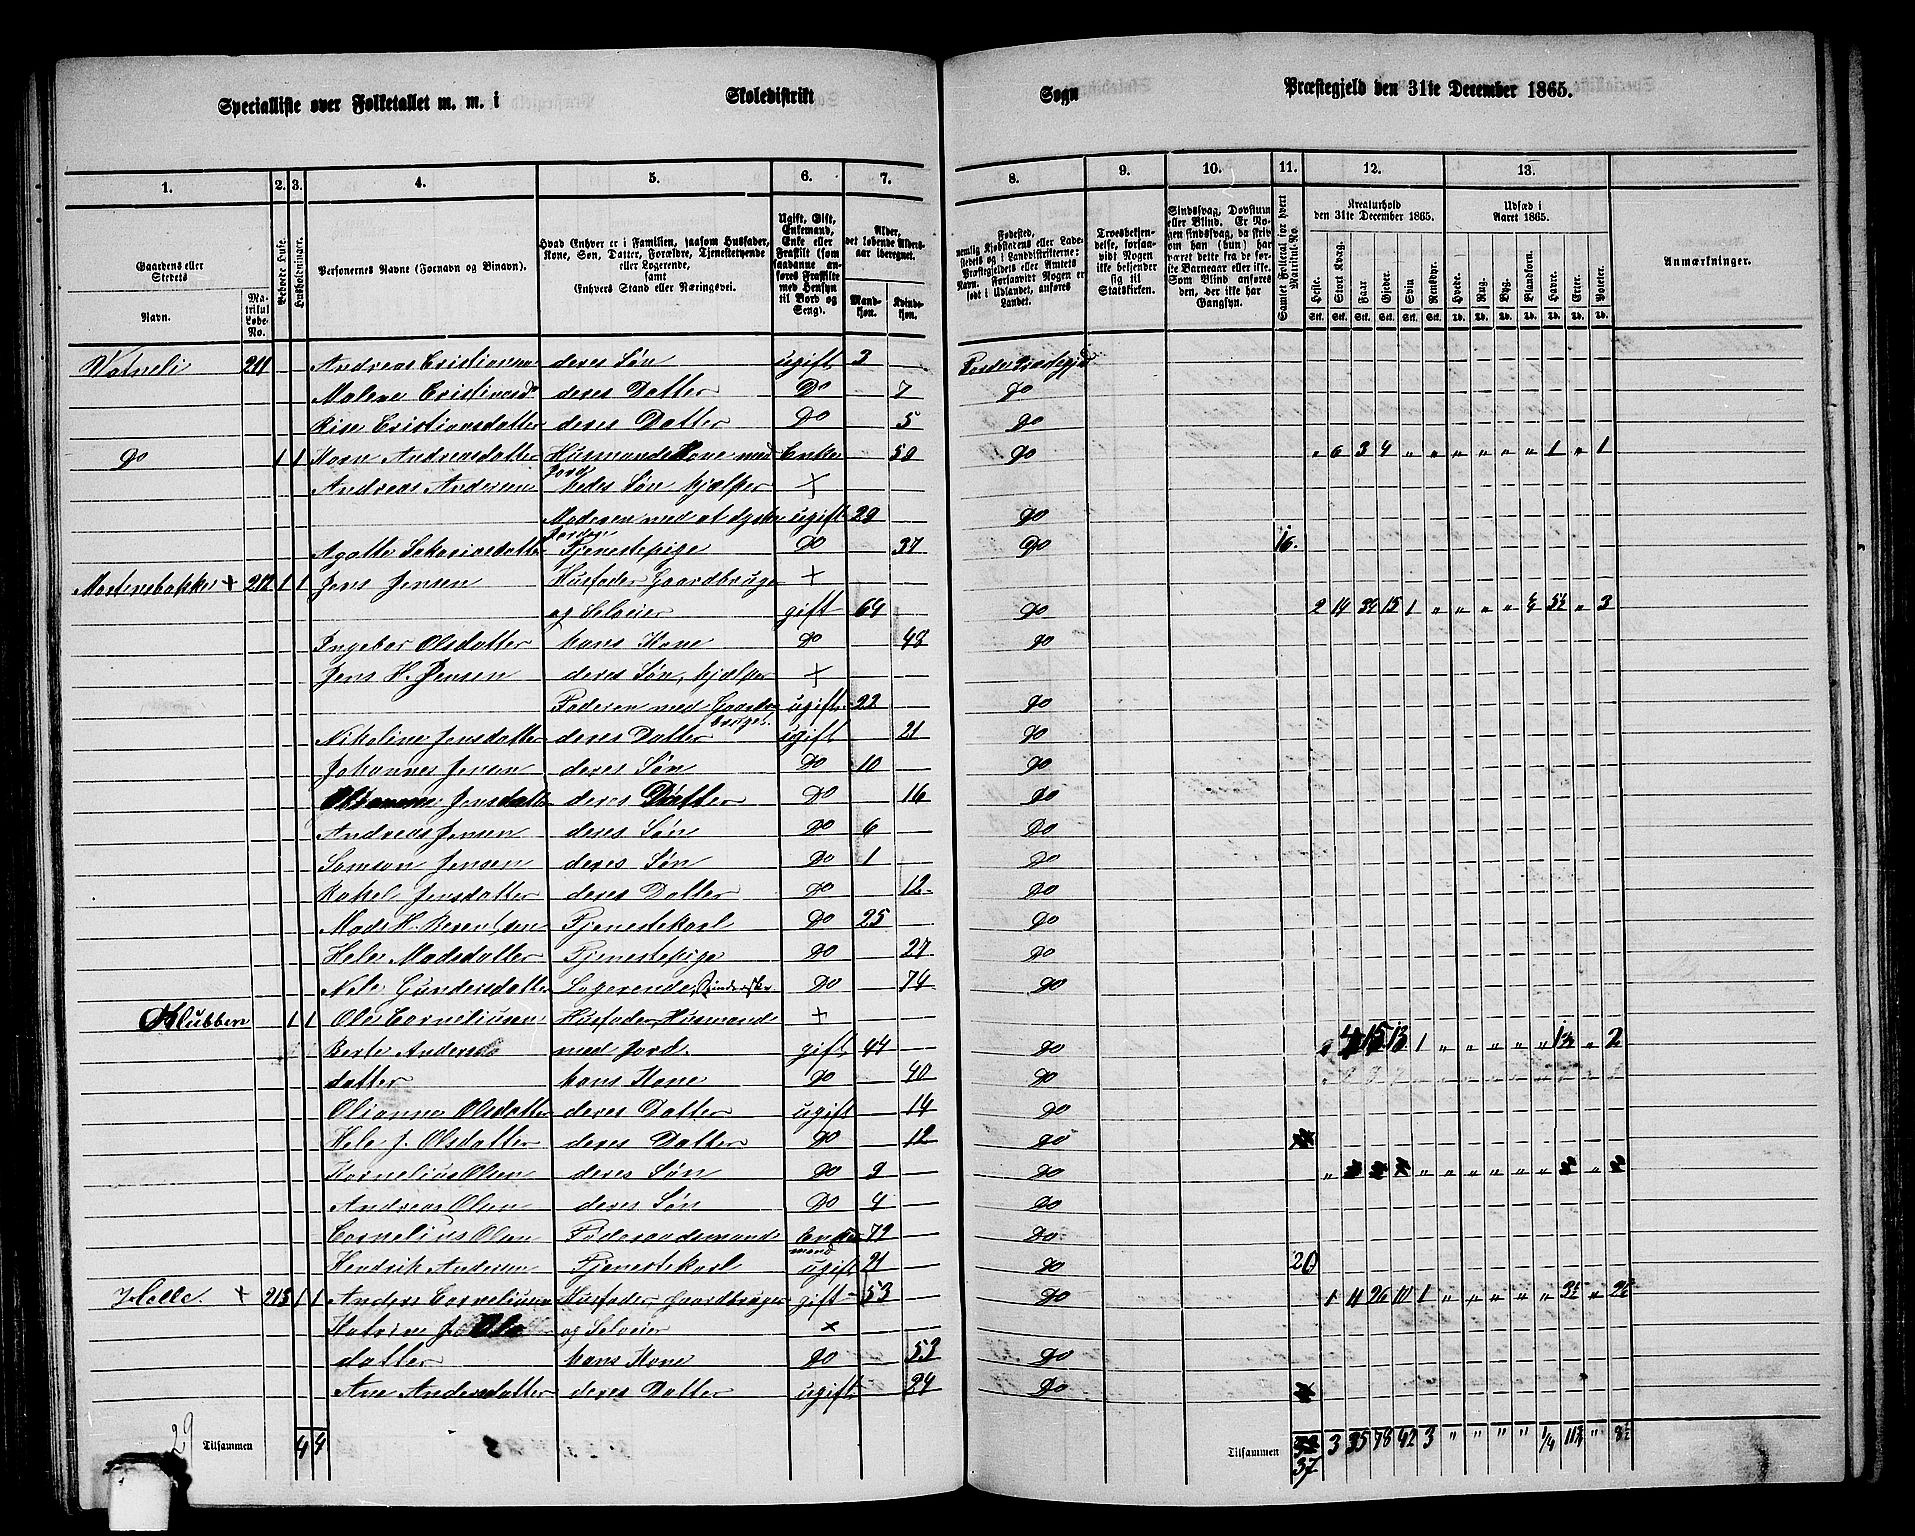 Specialliste over Folketallet m. m. i Skoledistrikt Sogn Præstegjeld den 31te December 1865.
1. 2. 3. 4. 5. 6. 7. 8. 9. 10. 11. 12. 13.
Gaardens eller Stedets Navn. Matrikul Løbe-No. Beboede Huse. Husholdninger. Personernes Navne (Fornavn og Binavn). Hvad Enhver er i Familien, saasom Husfader, Kone, Søn, Datter, Forældre, Tjenestetyende eller Logerende, samt Enhvers Stand eller Næringsvei. Ugift, Gift, Enkemand, Enke eller Fraskilt (som saadanne anføres Fraskilte med Hensyn til Bord og Seng). Alder, det løbende Aldersaar iberegnet. Mandkjøn. Kvindekjøn.
Fødested, nemlig Kjøbstadens eller Ladestedets og i Landdistrikterne: Præstegjeldets eller Amtets Navn. Forsaavidt Nogen er født i Udlandet, anføres Landet. Troesbekjendelse, forsaavidt Nogen ikke bekjender sig til Statskirken. Sindssvag, Døvstum eller Blind. Samlet Folketal for hvert Matrikul-No. Kreaturhold den 31te December 1865. Udsæd i Aaret 1865. Anmærkninger.
Heste. Stort Kvæg. Faar Gjeder. Svin Rensdyr. Hvede. Rug. Byg. Blandkorn. Havre. Erter. Poteter.
Vatneli 211 Andreas Cristiansen deres Søn ugift 2 Præstegjd
Malene Cristiansd deres Datter Do 7 Do
Cristiansdatter deres Datter Do 5 Do
Do 1 1 Andreasdatter Husmands Kone med Jord Enke 50 Do " 6 3 4 " " " " " " 1 " 1
Andreas Andersen hedes Søn hjælper +
Moderen med at dyrke Jorden ugift 29 Do
Agatte Sakariasdatter Tjenestepige Do 37 Do 16.
Mortensbakken + 212 1 1 Jens Jensen Husfader Gaardbruger +
og Selveier gift 64 Do 2 14 34 15 1 " " " " 1/4 5½ " 3
Ingebor Olsdatter hans Kone Do 48 Do
Jens H. Jensen deres Søn, hjælper +
Faderen med Gaardsbruget ugift 22 Do
Nikoline Jensdatter deres Datter ugift 21 Do
Johannes Jensen deres Søn Do 10 Do
Jensdatter deres Datter Do 16 Do
Andreas Jensen deres Søn Do 6 Do
Samson Jensen deres Søn Do 1 Do
Rakel Jensdatter deres Datter Do 12 Do
Mads H. Berentsen Tjenestekarl Do 25 Do
Hele Madsdatter Tjenestepige Do 27 Do
Nele Gundersdatter Logerende Do 74 Do
Klubben 1 1 Ole Corneliusen Husfader, Husmand +
Berte Anders med Jord. gift 44 Do 1 " " " " " " 2
datter hans Kone Do 40 Do
Olianne Olsdatter deres Datter ugift 14 Do
Hele J. Olsdatter deres Datter Do 12 Do
Kornelius Olsen deres Søn Do 9 Do
Andreas Olsen deres Søn Do 4 Do
Cornelius Olsen Føderaadsmand Enkemand 79 Do
Hendrik Andersen Tjenestekarl ugift 21 Do 20
Helle. + 213 1 1 Anders Corneliusen Husfader, Gaardbruger gift 53 Do 1 11 26 10 1 " " " " " "
og Selveier +
datter hans Kone Do 53 Do
Ane Andersdatter deres Datter ugift 24 Do
29 Tilsammen 4 4 Tilsammen 3 35 78 42 3 " " " " 1/4 "
37